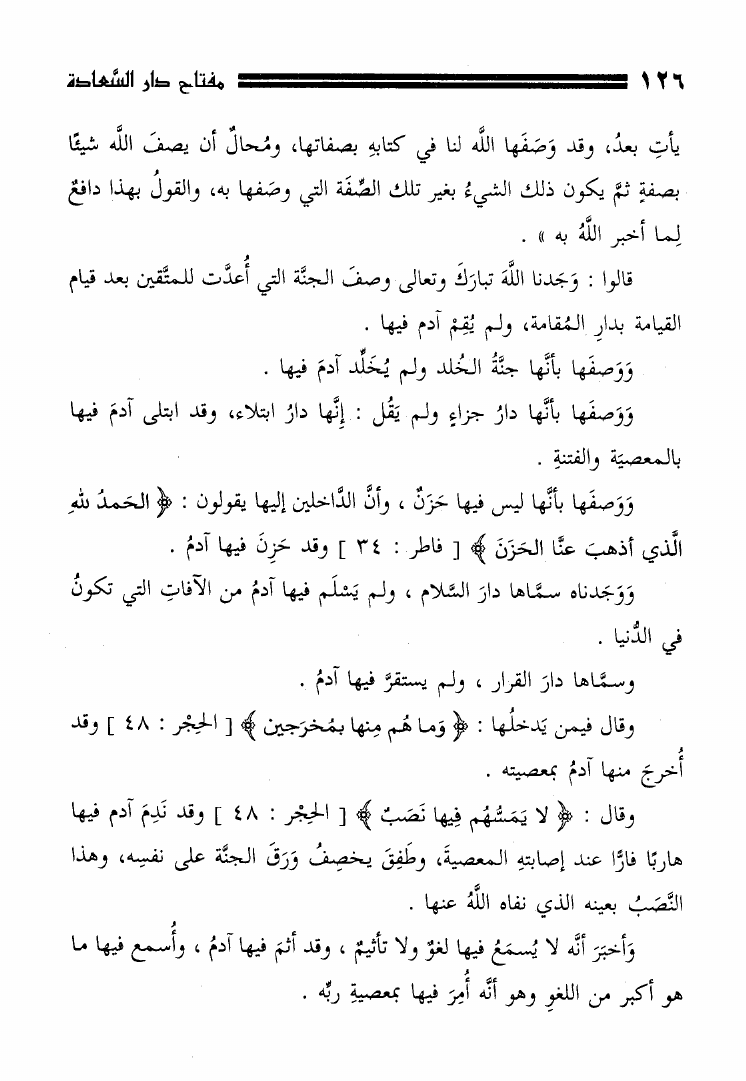 ١٢٦ مفتاح دار السَّعادة
يأتِ بعدُ، وقد وَصَفَها اللَّه لنا في كتابهِ بصفاتها، ومُحالٌ أن يصفَ اللَّه شيئًا
بصفةٍ ثمَّ يكون ذلك الشيءُ بغير تلك الصِّفَة التي وصَفها به، والقولُ بهذا دافعٌ
لِما أخبر اللَّهُ به » .
قالوا : وَجَدنا اللَّهَ تبارَكَ وتعالى وصفَ الجنَّة التي أُعدَّت للمتَّقين بعد قيام
القيامة بدارِ المُقامة، ولم يُقِمْ آدم فيها .
وَوَصفَها بأنَّها جنَّةُ الخُلد ولم يُخَلَّد آدمَ فيها .
وَوَصفَها بأنَّها دارُ جزاءٍ ولم يَقُل : إنَّها دارُ ابتلاء، وقد ابتلى آدمَ فيها
بالمعصيَة والفتنةِ .
وَوَصفَها بأنَّها ليس فيها حَزَنٌ ، وأنَّ الدَّاخلين إليها يقولون : ﴿ الحَمدُ للهِ
الَّذي أذهبَ عنَّا الحَزَنَ ﴾ [ فاطر : ٣٤ ] وقد حَزِنَ فيها آدمُ .
وَوَجَدناه سمَّاها دارَ السَّلام ، ولم يَسْلَم فيها آدمُ من الآفاتِ التي تكونُ
في الدُّنيا .
وسمَّاها دارَ القرار ، ولم يستقرَّ فيها آدمُ .
وقال فيمن يَدخلُها : ﴿ وَما هُم مِنها بمُخرَجين ﴾ [ الحِجْر : ٤٨ ] وقد
أُخرجَ منها آدمُ بمعصيته .
وقال : ﴿ لا يَمَسُّهُم فِيها نَصَبٌ ﴾ [ الحِجْر : ٤٨ ] وقد نَدِمَ آدم فيها
هاربًا فارًّا عند إصابتهِ المعصيةَ، وطَفِقَ يخصِفُ وَرَقَ الجنَّة على نفسِه، وهذا
النَّصَبُ بعينه الذي نفاه اللَّهُ عنها .
وَأخبَرَ أنَّه لا يُسمَعُ فيها لغوٌ ولا تأثيمٌ ، وقد أثمَ فيها آدمُ ، وأُسمع فيها ما
هو أكبر من اللغوِ وهو أنَّه أُمِرَ فيها بمعصيةِ ربِّه .